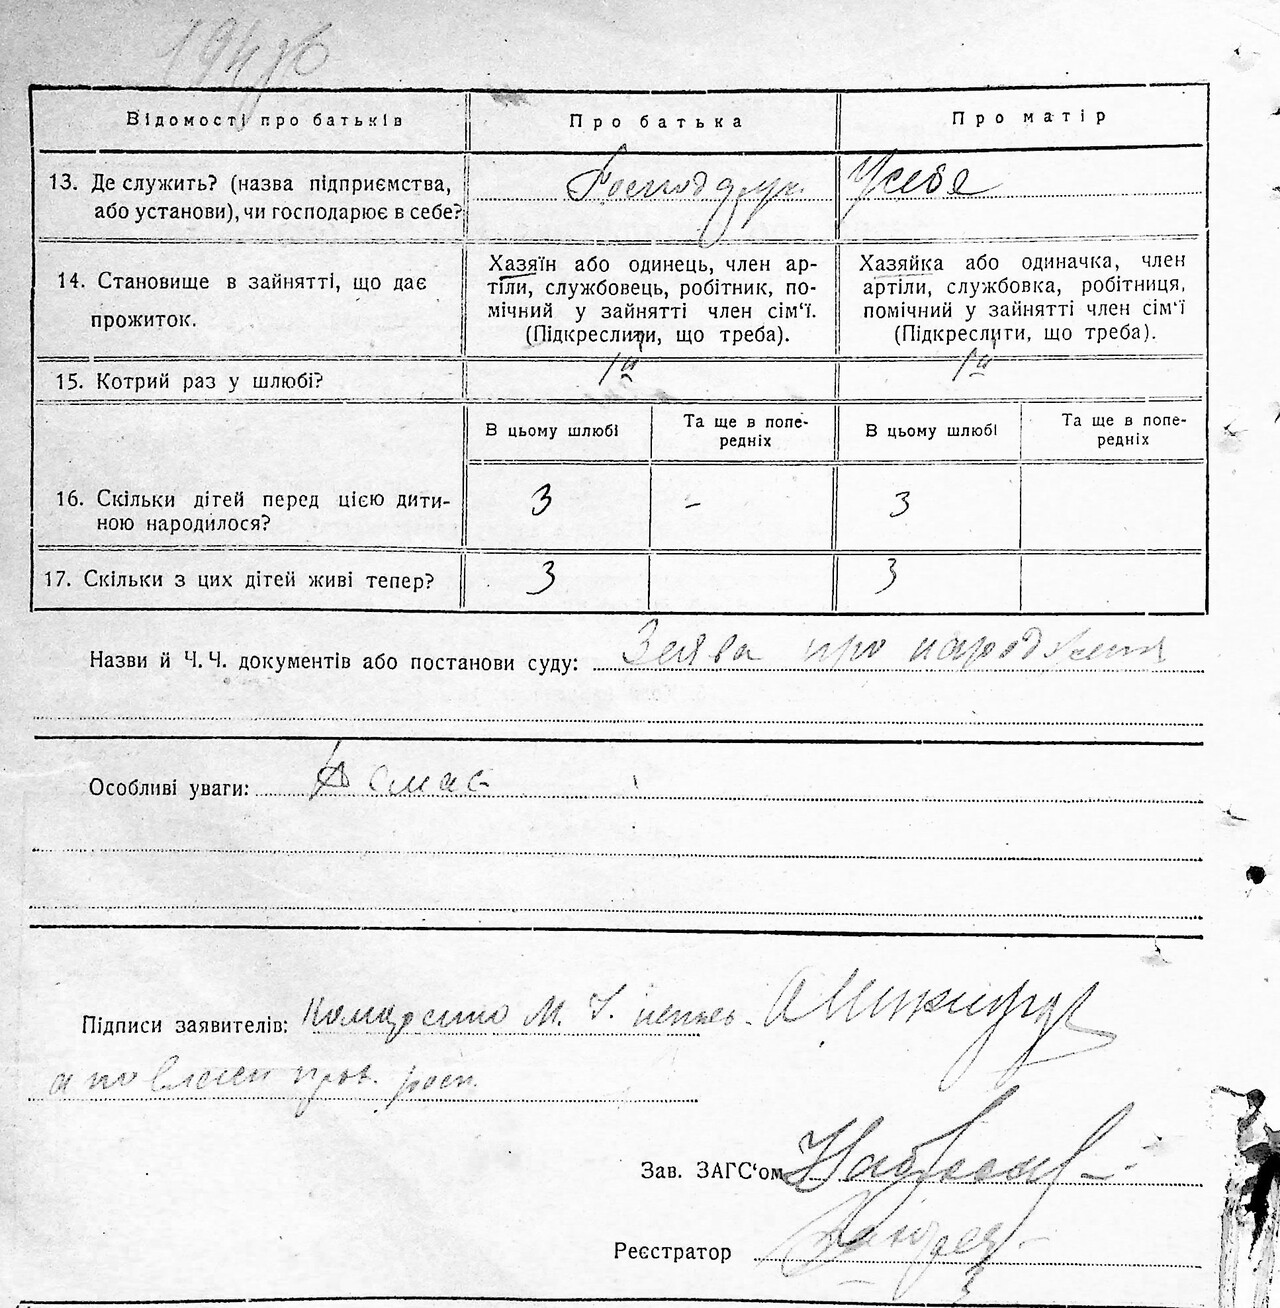 Відомості про батьків
Про батька
Про матір
13. Де служить? (назва підприємства, або установи), чи господарює в себе?
У себе
14. Становище в зайнятті, що дає прожиток.
Хазяїн або одинець, член ар-
тіли, службовець, робітник, по-
мічний у зайнятті член сім'ї.
(Підкреслити, що треба).
Хазяйка або одиначка, член
артіли, службовка, робітниця,
помічний у зайнятті член сім'ї
(Підкреслити, що треба).
15. Котрий раз у шлюбі?
1й
1й
В цьому шлюбі
Та ще в попе-
редніх
В цьому шлюбі
Та ще в попе-
редніх
16. Скільки дітей перед цією дити-
ною народилося?
3
-
3
17. Скільки з цих дітей живі тепер?
3
3
Назви й Ч. Ч. документів або постанови суду: Заява про народження
Особливі уваги:
Підписи заявителів: М.
Зав. ЗАГС'ом
Реєстратор